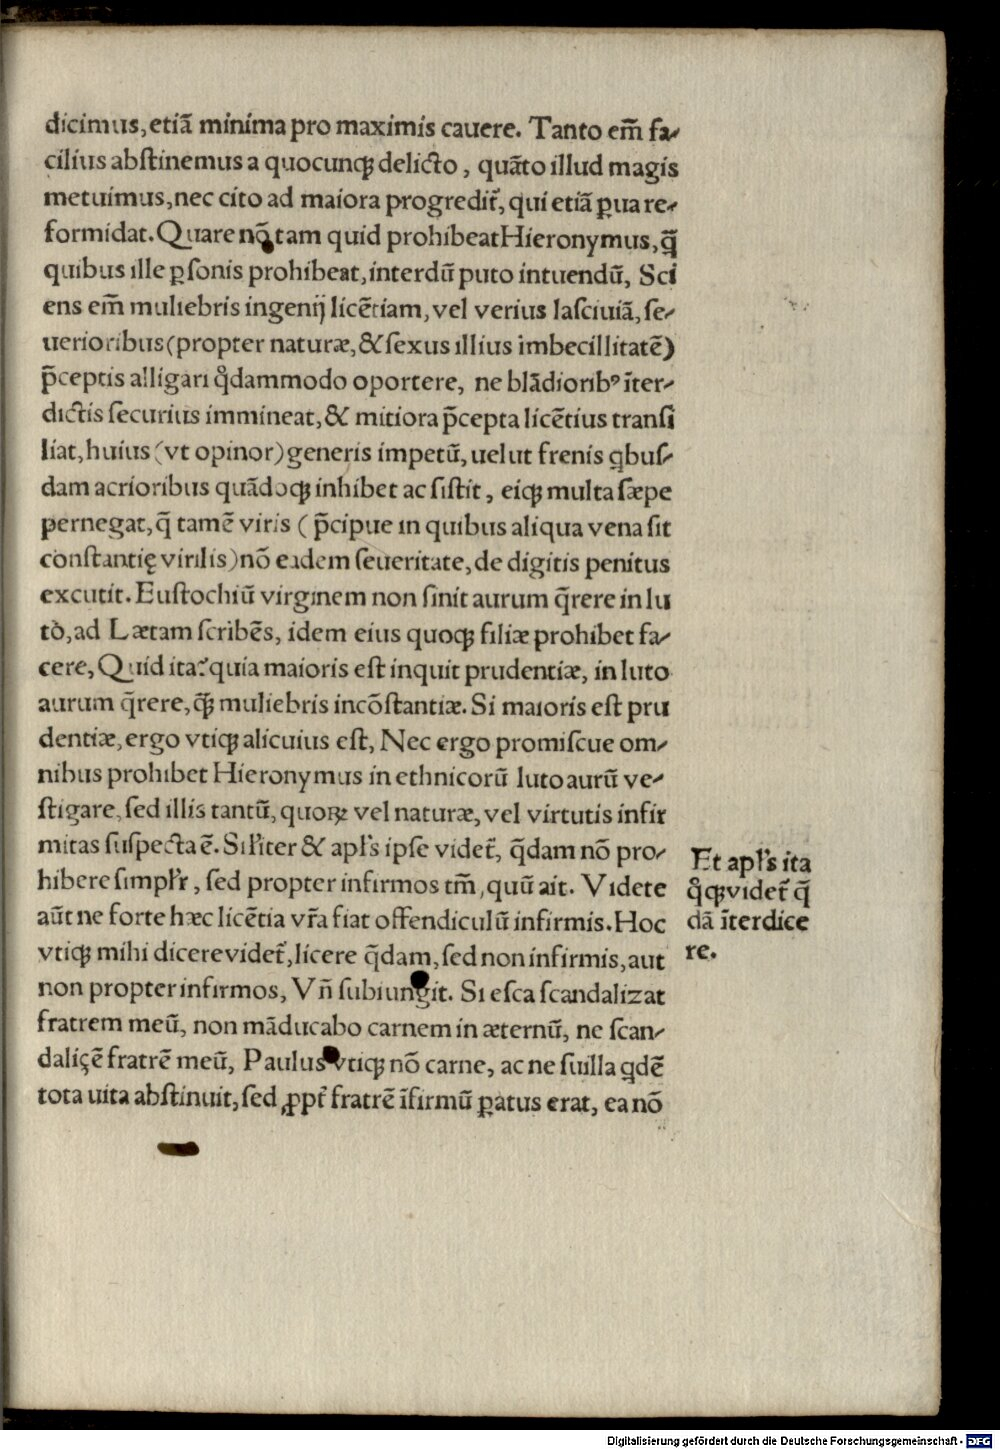 dicimus, etiã minima pro maximis cauere. Tanto em̃ fa-
cilius abstinemus a quocunqꝫ delicto, quãto illud magis
metuimus, nec cito ad maiora progredit̃, qui etiã ꝑua re-
formidat. Quare nõ tam quid prohibeat Hieronymus, q̃
quibus ille ꝑsonis prohibeat, interdũ puto intuendũ, Sci
ens em̃ muliebris ingenij licẽtiam, vel verius lasciuiã, se-
uerioribus (propter naturæ, & sexus illius imbecillitatẽ)
p̃ceptis alligari q̊dammodo oportere, ne blãdioribꝰ ĩter-
dictis securius immineat, & mitiora p̃cepta licẽtius transi
liat, huius (vt opinor) generis impetũ, uelut frenis ꝗbus-
dam acrioribus quãdoqꝫ inhibet ac sistit, eiqꝫ multa sæpe
pernegat, q̃ tamẽ viris (p̃cipue in quibus aliqua vena sit
constantię virilis) nõ eadem seueritate, de digitis penitus
excutit. Eustochiũ virginem non sinit aurum q̃rere in lu
to, ad Lætam scribẽs, idem eius quoqꝫ filiæ prohibet fa-
cere, Quid ita? quia maioris est inquit prudentiæ, in luto
aurum q̃rere, q̃ꝫ muliebris incõstantiæ. Si maioris est pru
dentiæ, ergo vtiqꝫ alicuius est, Nec ergo promiscue om-
nibus prohibet Hieronymus in ethnicorũ luto aurũ ve-
stigare, sed illis tantũ, quoꝝ vel naturæ, vel virtutis infir
mitas suspecta ẽ. Sil̃iter & apl̃s ipse videt̃, q̃dam nõ pro-
hibere simpl̃r, sed propter infirmos tm̃, quũ ait. Videte
aũt ne forte hæc licẽtia vr̃a fiat offendiculũ infirmis. Hoc
vtiqꝫ mihi dicere videt̃, licere q̃dam, sed non infirmis, aut
non propter infirmos, Vñ subiungit. Si esca scandalizat
fratrem meũ, non mãducabo carnem in æternũ, ne scan-
daliçẽ fratrẽ meũ, Paulus vtiqꝫ nõ carne, ac ne suilla ꝗdẽ
tota uita abstinuit, sed ꝓpt̃ fratrẽ ĩfirmũ ꝑatus erat, ea nõ
Et apl̃s ita
q̊qꝫ videt̃ q̃
dã ĩterdice
re.
Digitalisierung gefördert durch die Deutsche Forschungsgemeinschaft - DFG